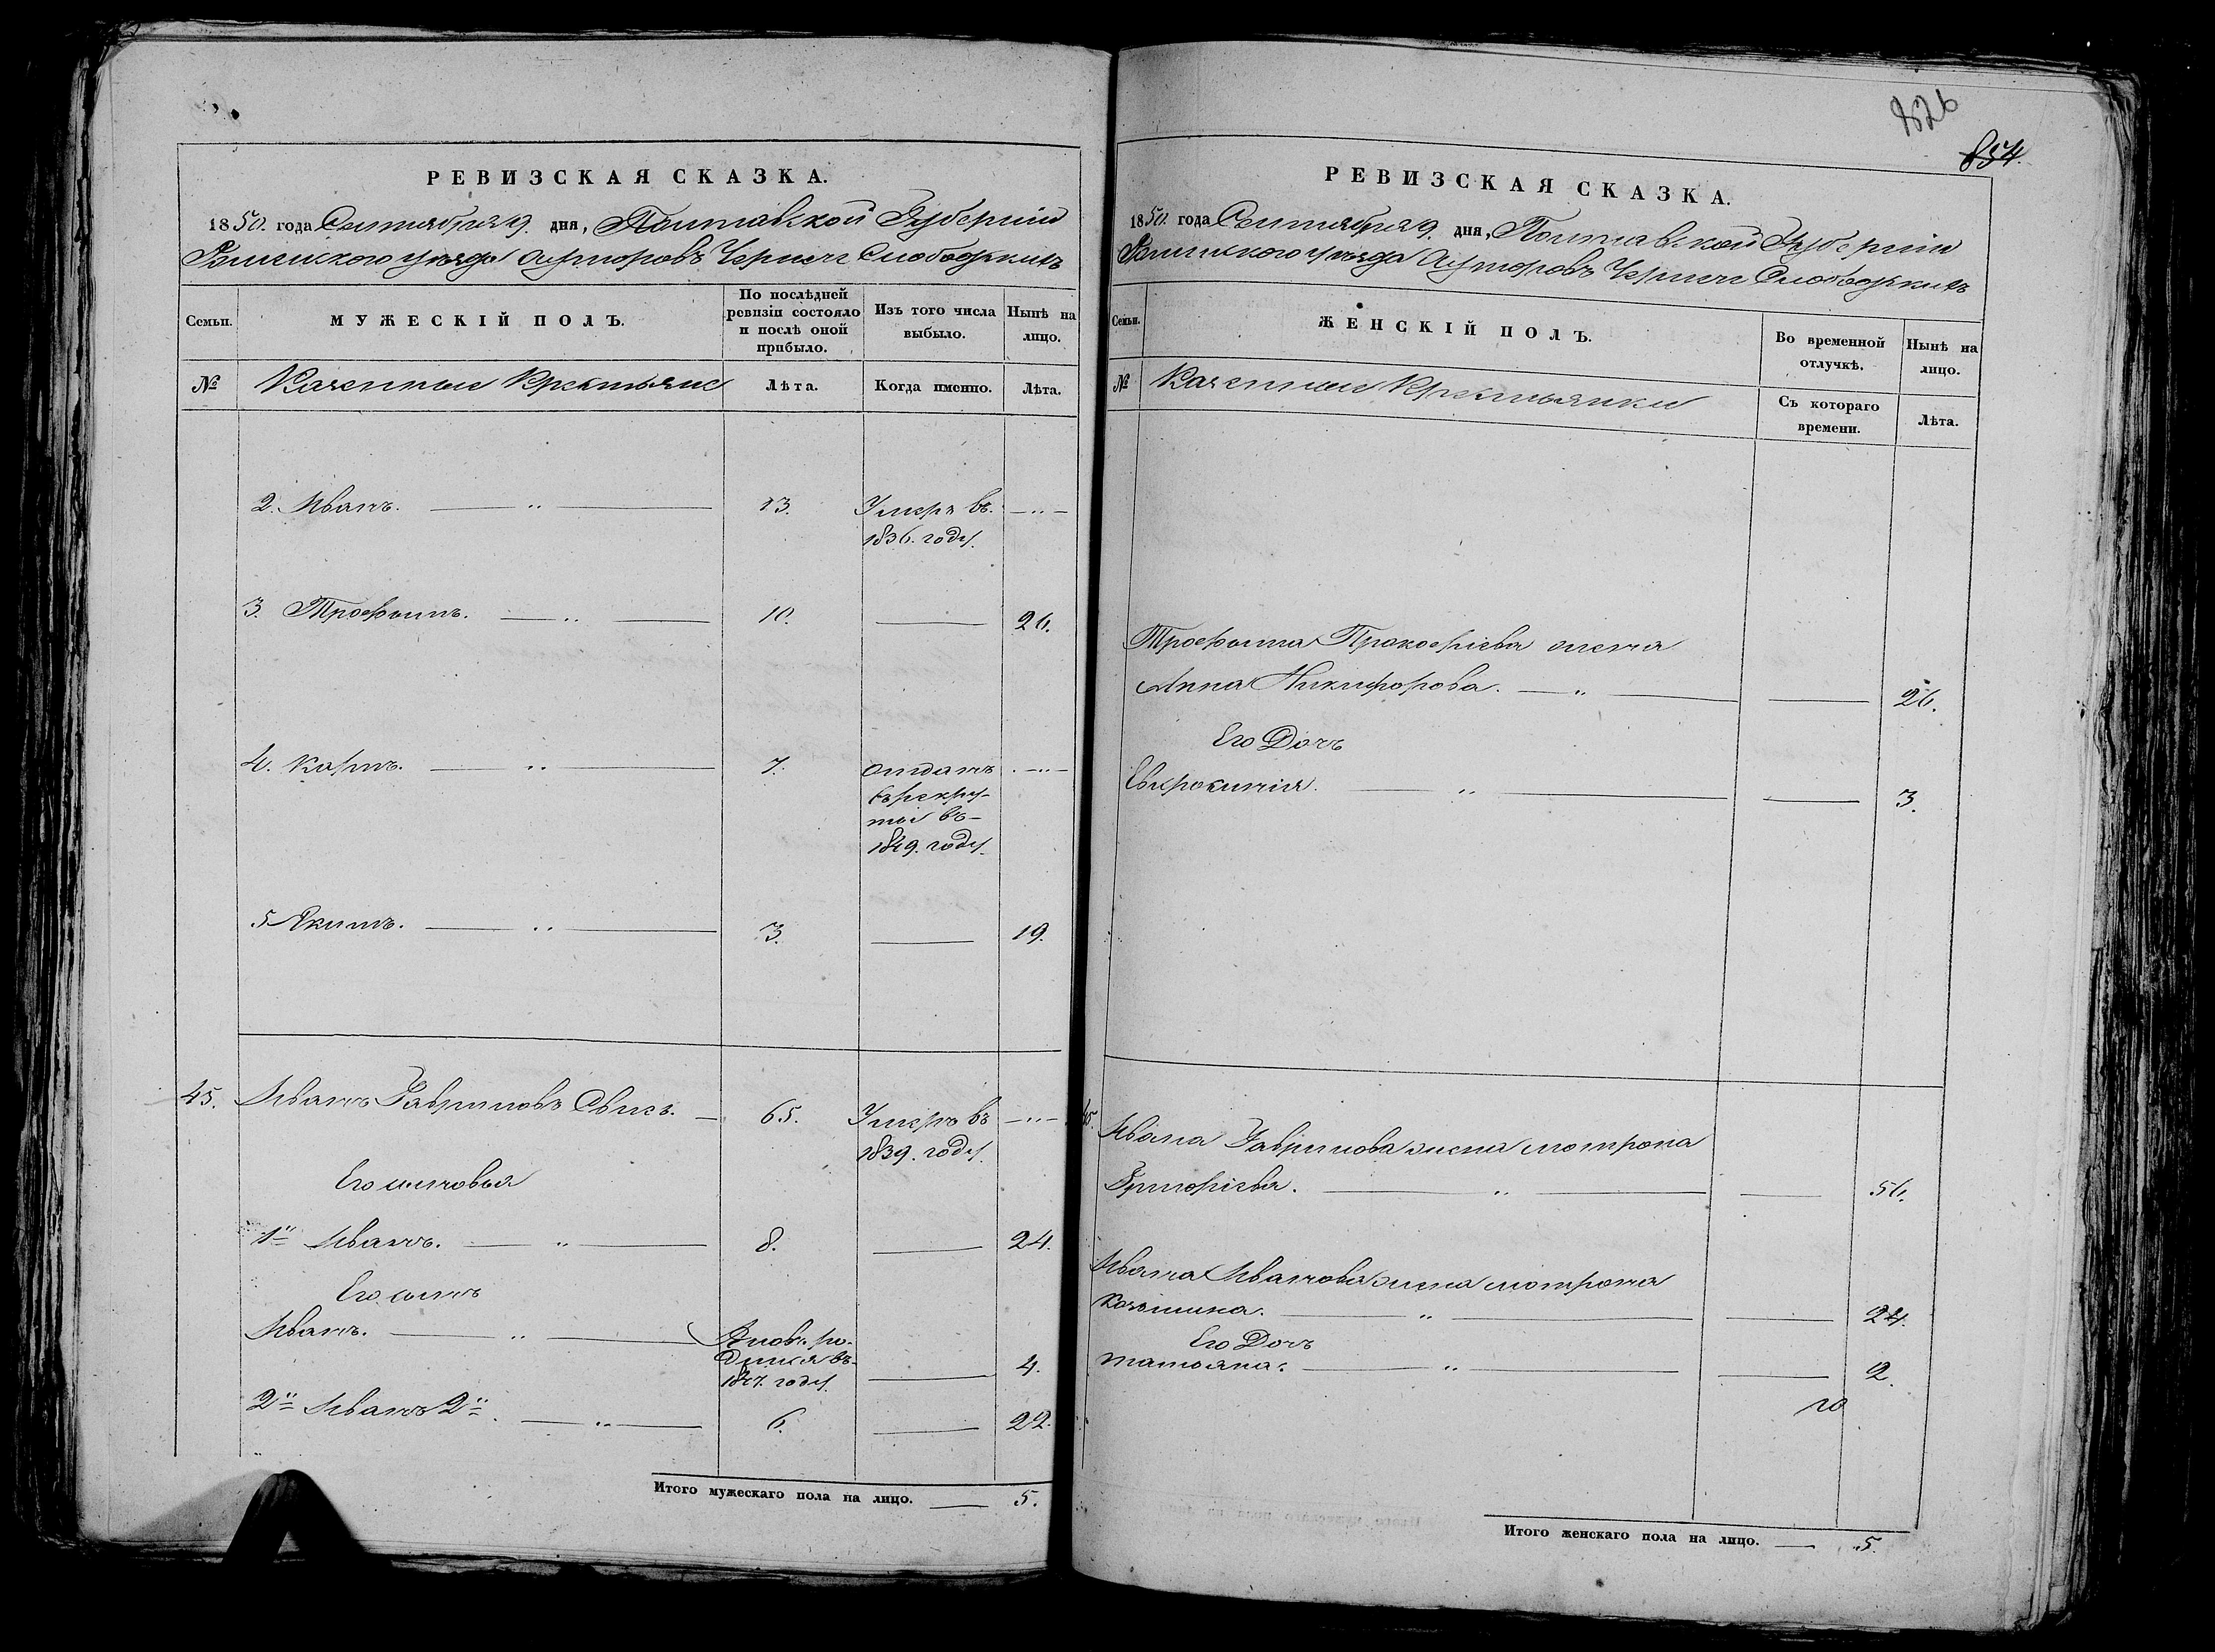 РЕВИЗСКАЯ СКАЗКА.
1850. года Сентября 9. дня, Полтавской Губернии
Роменского уезда Хуторовъ Чернечє Слободскихъ
Семьи.
МУЖЕСКІЙ ПОЛЪ.
По послѣдней ревизіи состояло и послѣ оной прибыло.
Изъ того числа выбыло.
Нынѣ на лицо.
№
Казенные Крестьяне
Лѣта.
Когда именно.
Лѣта.
2. Иванъ. 13. Умеръ въ
1836. году.
3. Трофимъ. 10. 26.
4. Карпъ. 7. отданъ
въ рекру-
ты въ
1849. году.
5 Якимъ. 3. 19.
45. Иванъ Гавриловъ 65. Умеръ въ
1839. году.
Его сыновья
1й Иванъ. 8. 24.
Его сынъ
Иванъ. Вновь ро-
дился въ
1847. году. 4.
2й Иванъ 2й. 6. 22.
Итого мужескаго пола на лицо. 5.
826
854.
РЕВИЗСКАЯ СКАЗКА.
1850. года Сентября 9. дня, Полтавской Губернии
Роменского уезда Хуторовъ Чернечє Слободскихъ
Семьи.
ЖЕНСКІЙ ПОЛЪ.
Во временной отлучкѣ.
Нынѣ на лицо.
№
Казенные Крестьянки
Съ котораго времени.
Лѣта.
Трофима Прокофіева жена
Анна Никифорова. 26.
Его Дочь
Евфросинія. 3.
45. Ивана Гаврилова жена мотрона
Григоріева. 56.
Ивана Иванова жена мотрона
Козьмина. 24.
Его Дочь
татьяна. 2.
10
Итого женскаго пола на лицо. 5.